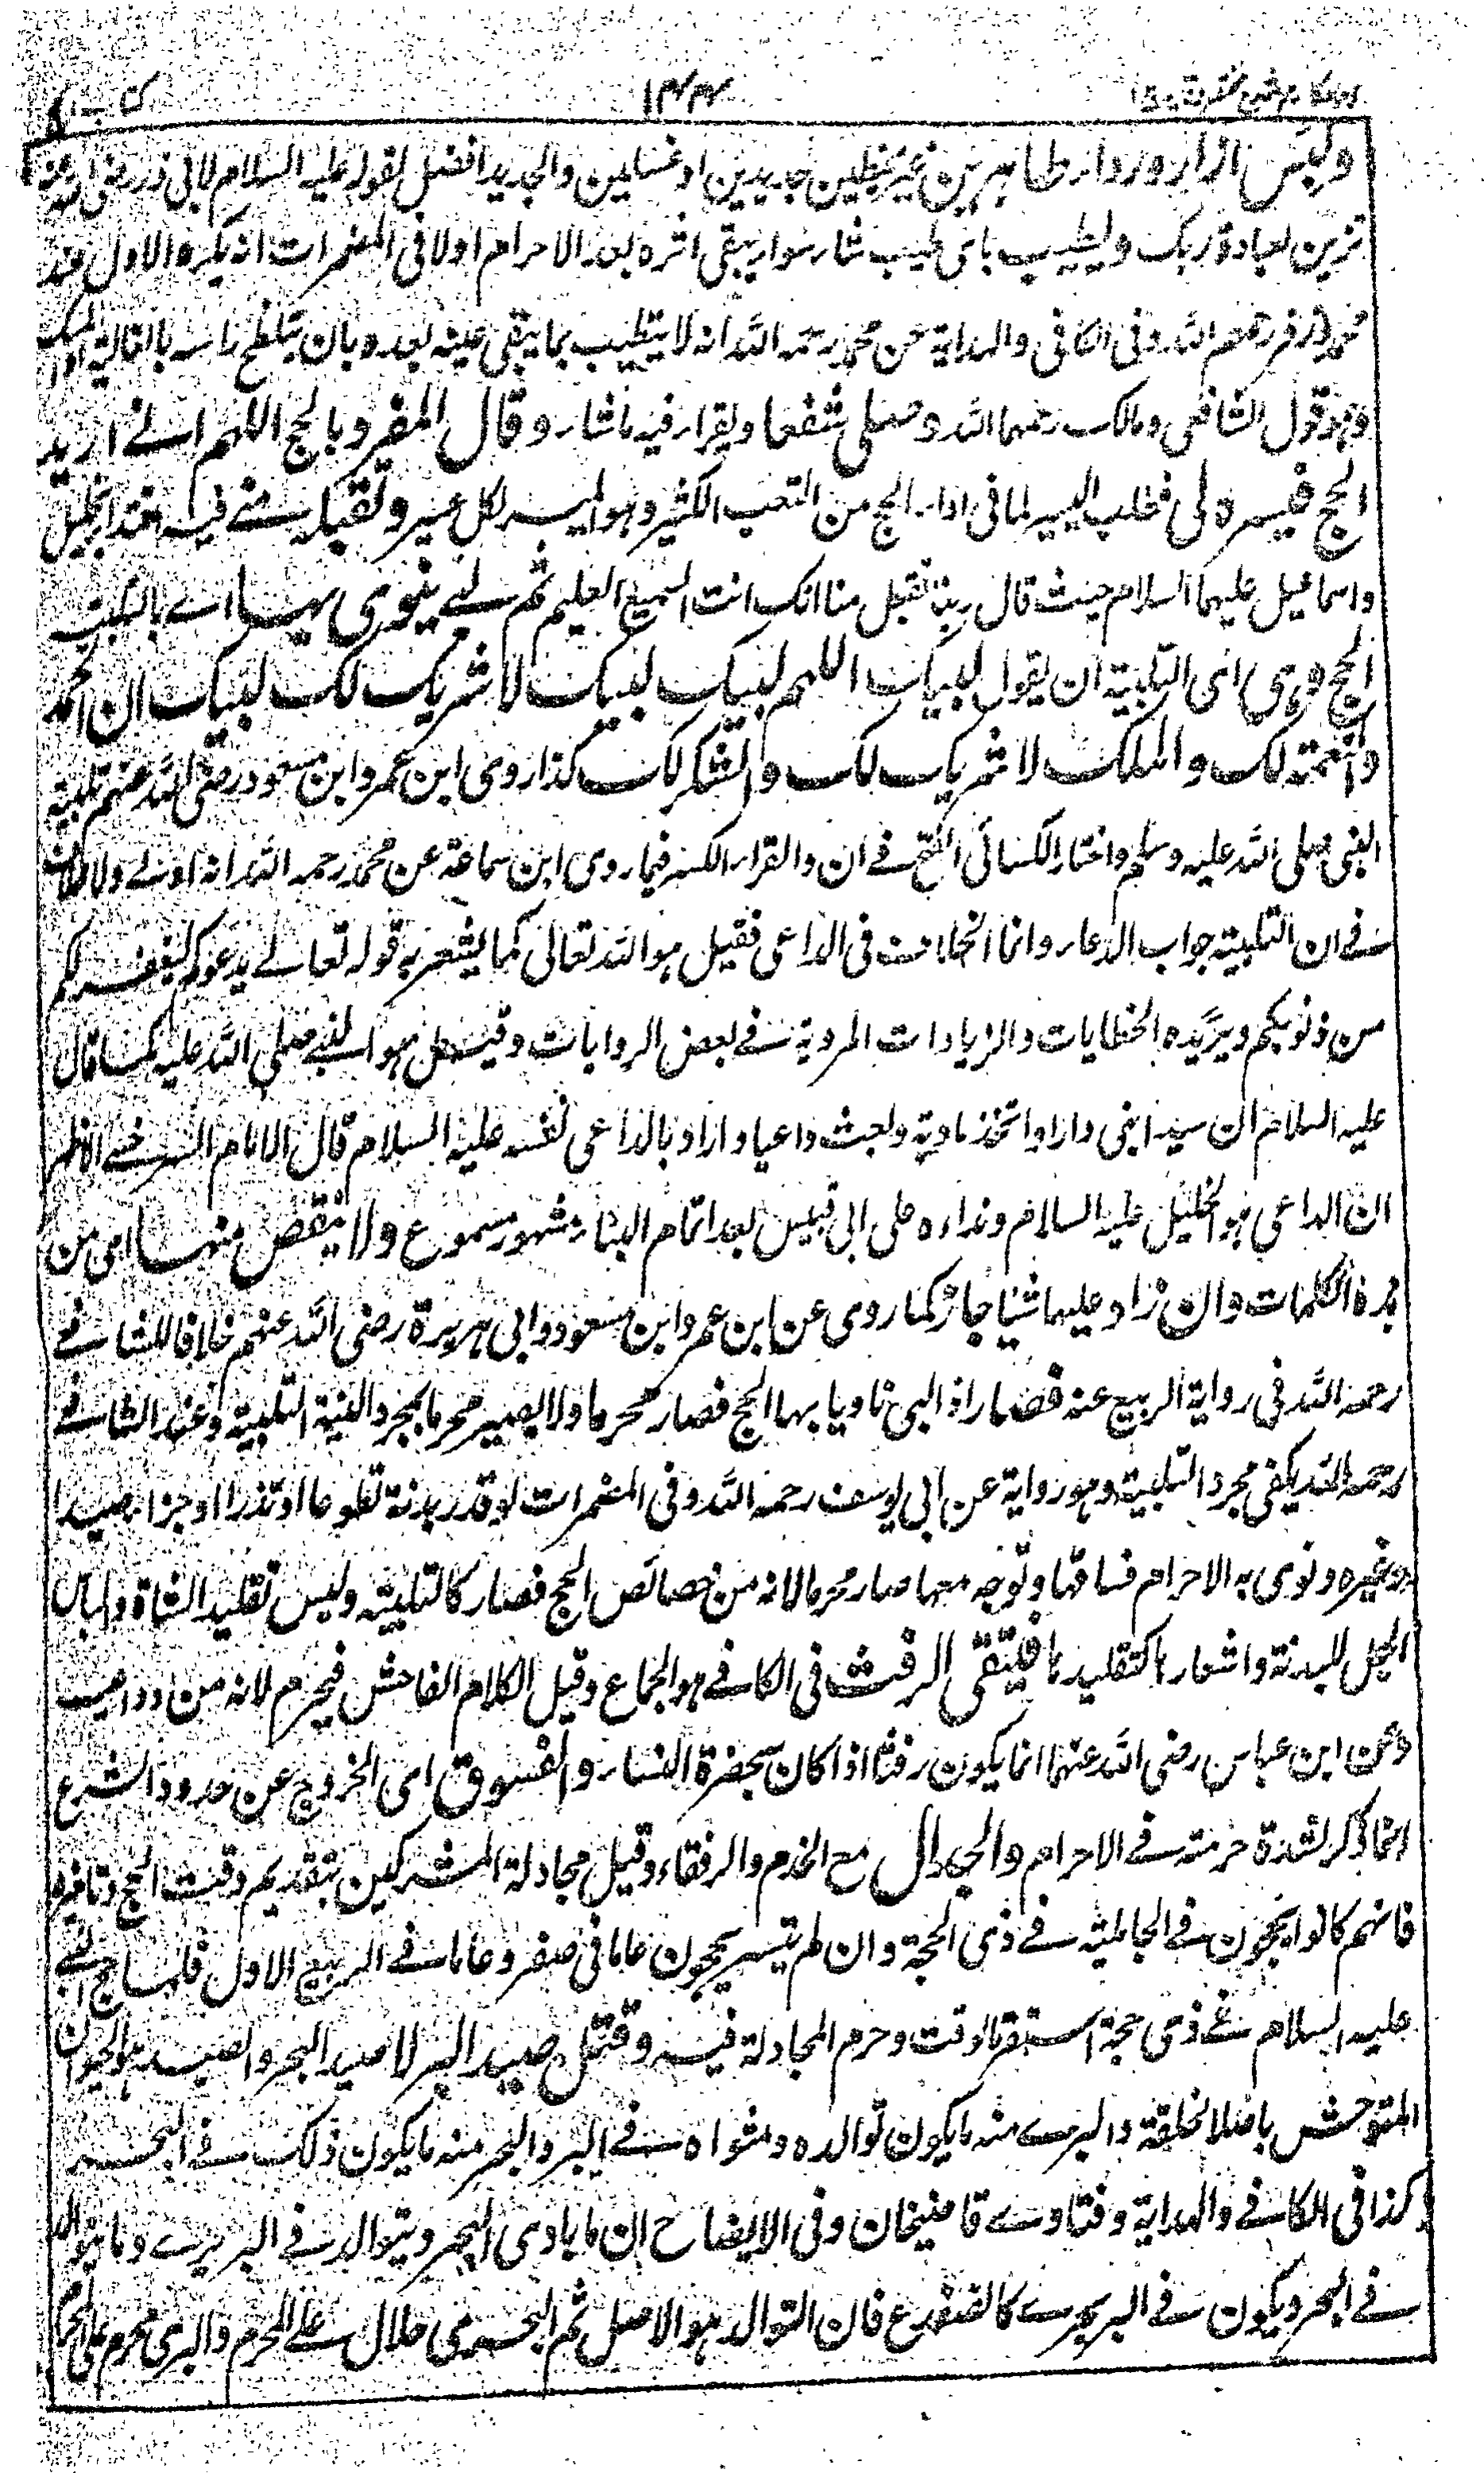 ولبس ازار ورداء طاهرين غير مخيطين جديدين او غسيلين والجديد افضل لقوله عليه السلام لابى ذر رضى الله عنه
تزين لعبادة ربك وليطيب باى طيب شاء سواء يبقى اثره بعد الاحرام اولا فى المضمرات انه يكره الاول عند
محمد وزفر رحمهم الله وفى الكافى والهداية عن محمد رحمه الله انه لا يتطيب بما يبقى عينه بعده بان يتلطخ راسه بالغالية او المسك
وهو قول الشافعى ومالك رحمهما الله وصلى شفعا ويقرأ فيه ما شاء وقال المفرد بالحج اللهم انى اريد
الحج فيسره لى فطلب اليسير لما فى اداء الحج من التعب الكثير وهو الميسر لكل عسير وتقبله منى فيه اقتداء بخليل
واسماعيل عليهما السلام حيث قال ربنا تقبل منا انك انت السميع العليم ثم لبى ينوى بها اى بالتلبية
الحج وهى اى التلبية ان يقول لبيك اللهم لبيك لبيك لا شريك لك لبيك ان الحمد
والنعمة لك والملك لا شريك لك والشكر لك كذا روى ابن عمر وابن مسعود رضى الله عنهم تلبية
النبى صلى الله عليه وسلم واختار الكسائى الفتح فى ان والفراء الكسر فيما روى ابن سماعة عن محمد رحمه الله انه اولى ولا خلاف
فى ان التلبية جواب الدعاء وانما الخلاف فى الداعى فقيل هو الله تعالى كما يشعر به قوله تعالى يدعوكم ليغفر لكم
من ذنوبكم ويؤيده الخطابات والزيادات المروية فى بعض الروايات وقيل هو النبى صلى الله عليه كما قال
عليه السلام ان سيدا بنى دارا واتخذ مادبة وبعث داعيا واراد بالداعى نفسه عليه السلام قال الامام السرخسى الاظهر
ان الداعى هو الخليل عليه السلام ونداءه على ابى قبيس بعد اتمام البناء مشهور مسموع ولا ينقص منها اى من
هذه الكلمات وان زاد عليها شيئا جاز كما روى عن ابن عمر وابن مسعود وابى هريرة رضى الله عنهم خلافا للشافعى
رحمه الله فى رواية الربيع عنه فصار اذا لبى ناويا بها الحج فصار محرما ولا يصير محرما بمجرد النية التلبية وعند الشافعى
رحمه الله يكفى مجرد التلبية وهو رواية عن ابى يوسف رحمه الله وفى المضمرات لو قلد بدنة تطوعا او نذرا او جزاء صيد
وغيره ونوى به الاحرام فساقها وتوجه معها صار محرما لانه من خصائص الحج فصار كالتلبية وليس تقليد الشاة والباس
الجل للبدنة واشعارها كتقليدها فيتقى الرفث فى الكافى هو الجماع وقيل الكلام الفاحش فيحرم لانه من دواعيه
وعن ابن عباس رضى الله عنهما انما يكون رفثا اذا كان بحضرة النساء والفسوق اى الخروج عن حدود الشرع
انما ذكر لشدة حرمته فى الاحرام والجدال مع الخدم والرفقاء وقيل مجادلة المشركين بتقديم وقت الحج وتاخيره
فانهم كانوا يحجون فى الجاهلية فى ذى الحجة وان لم يتيسر يحجون عاما فى صفر وعاما فى الربيع الاول فلما حج النبى
عليه السلام فى ذى حجة استقر الوقت وحرم المجادلة فيه وقتل صيد البر لا صيد البحر والصيد هو الحيوان
المتوحش باصل الخلقة والبرى منه ما يكون توالده ومثواه فى البر والبحر منه ما يكون ذلك فى البحر
كذا فى الكافى والهداية وفتاوى قاضيخان وفى الايضاح ان ما ياوى البحر ويتوالد فى البر برى وما يتوالد
فى البحر ويكون فى البر بحرى كالضفدع فان التوالد هو الاصل ثم البحرى حلال على المحرم والبرى محرم على المحرم